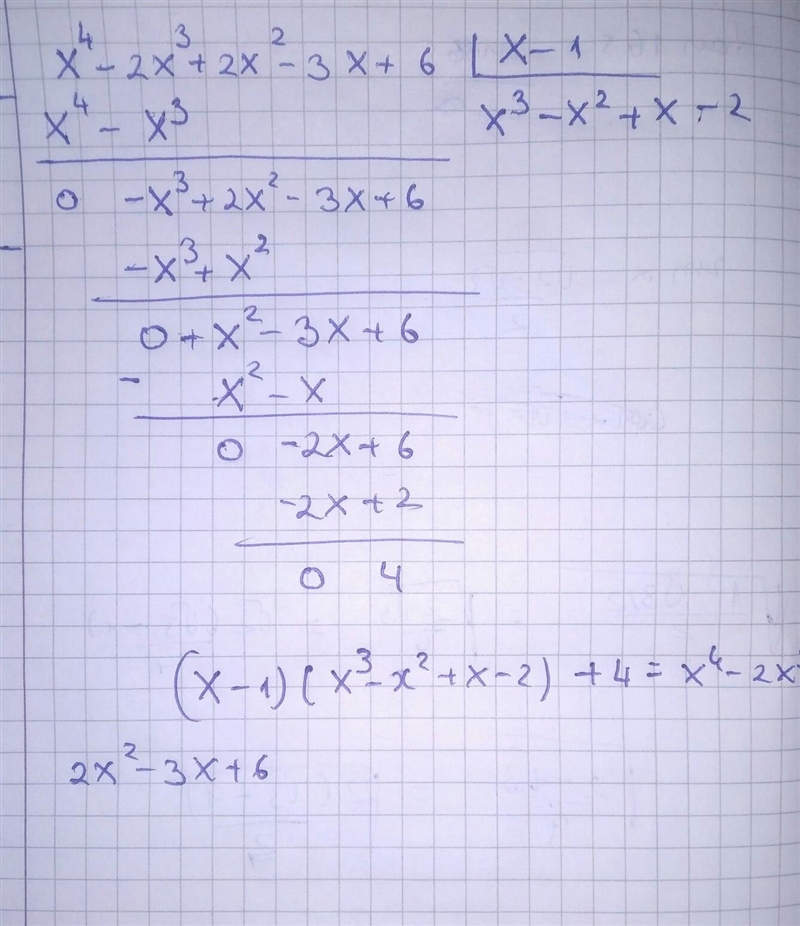 x⁴ - 2x³ + 2x² - 3x + 6 | x - 1
x⁴ - x³ x³ - x² + x - 2
0 - x³ + 2x² - 3x + 6
- x³ + x²
0 + x² - 3x + 6
- x² - x
0 - 2x + 6
- 2x + 2
0 4
(x - 1)(x³ - x² + x - 2) + 4 = x⁴ - 2x
2x² - 3x + 6